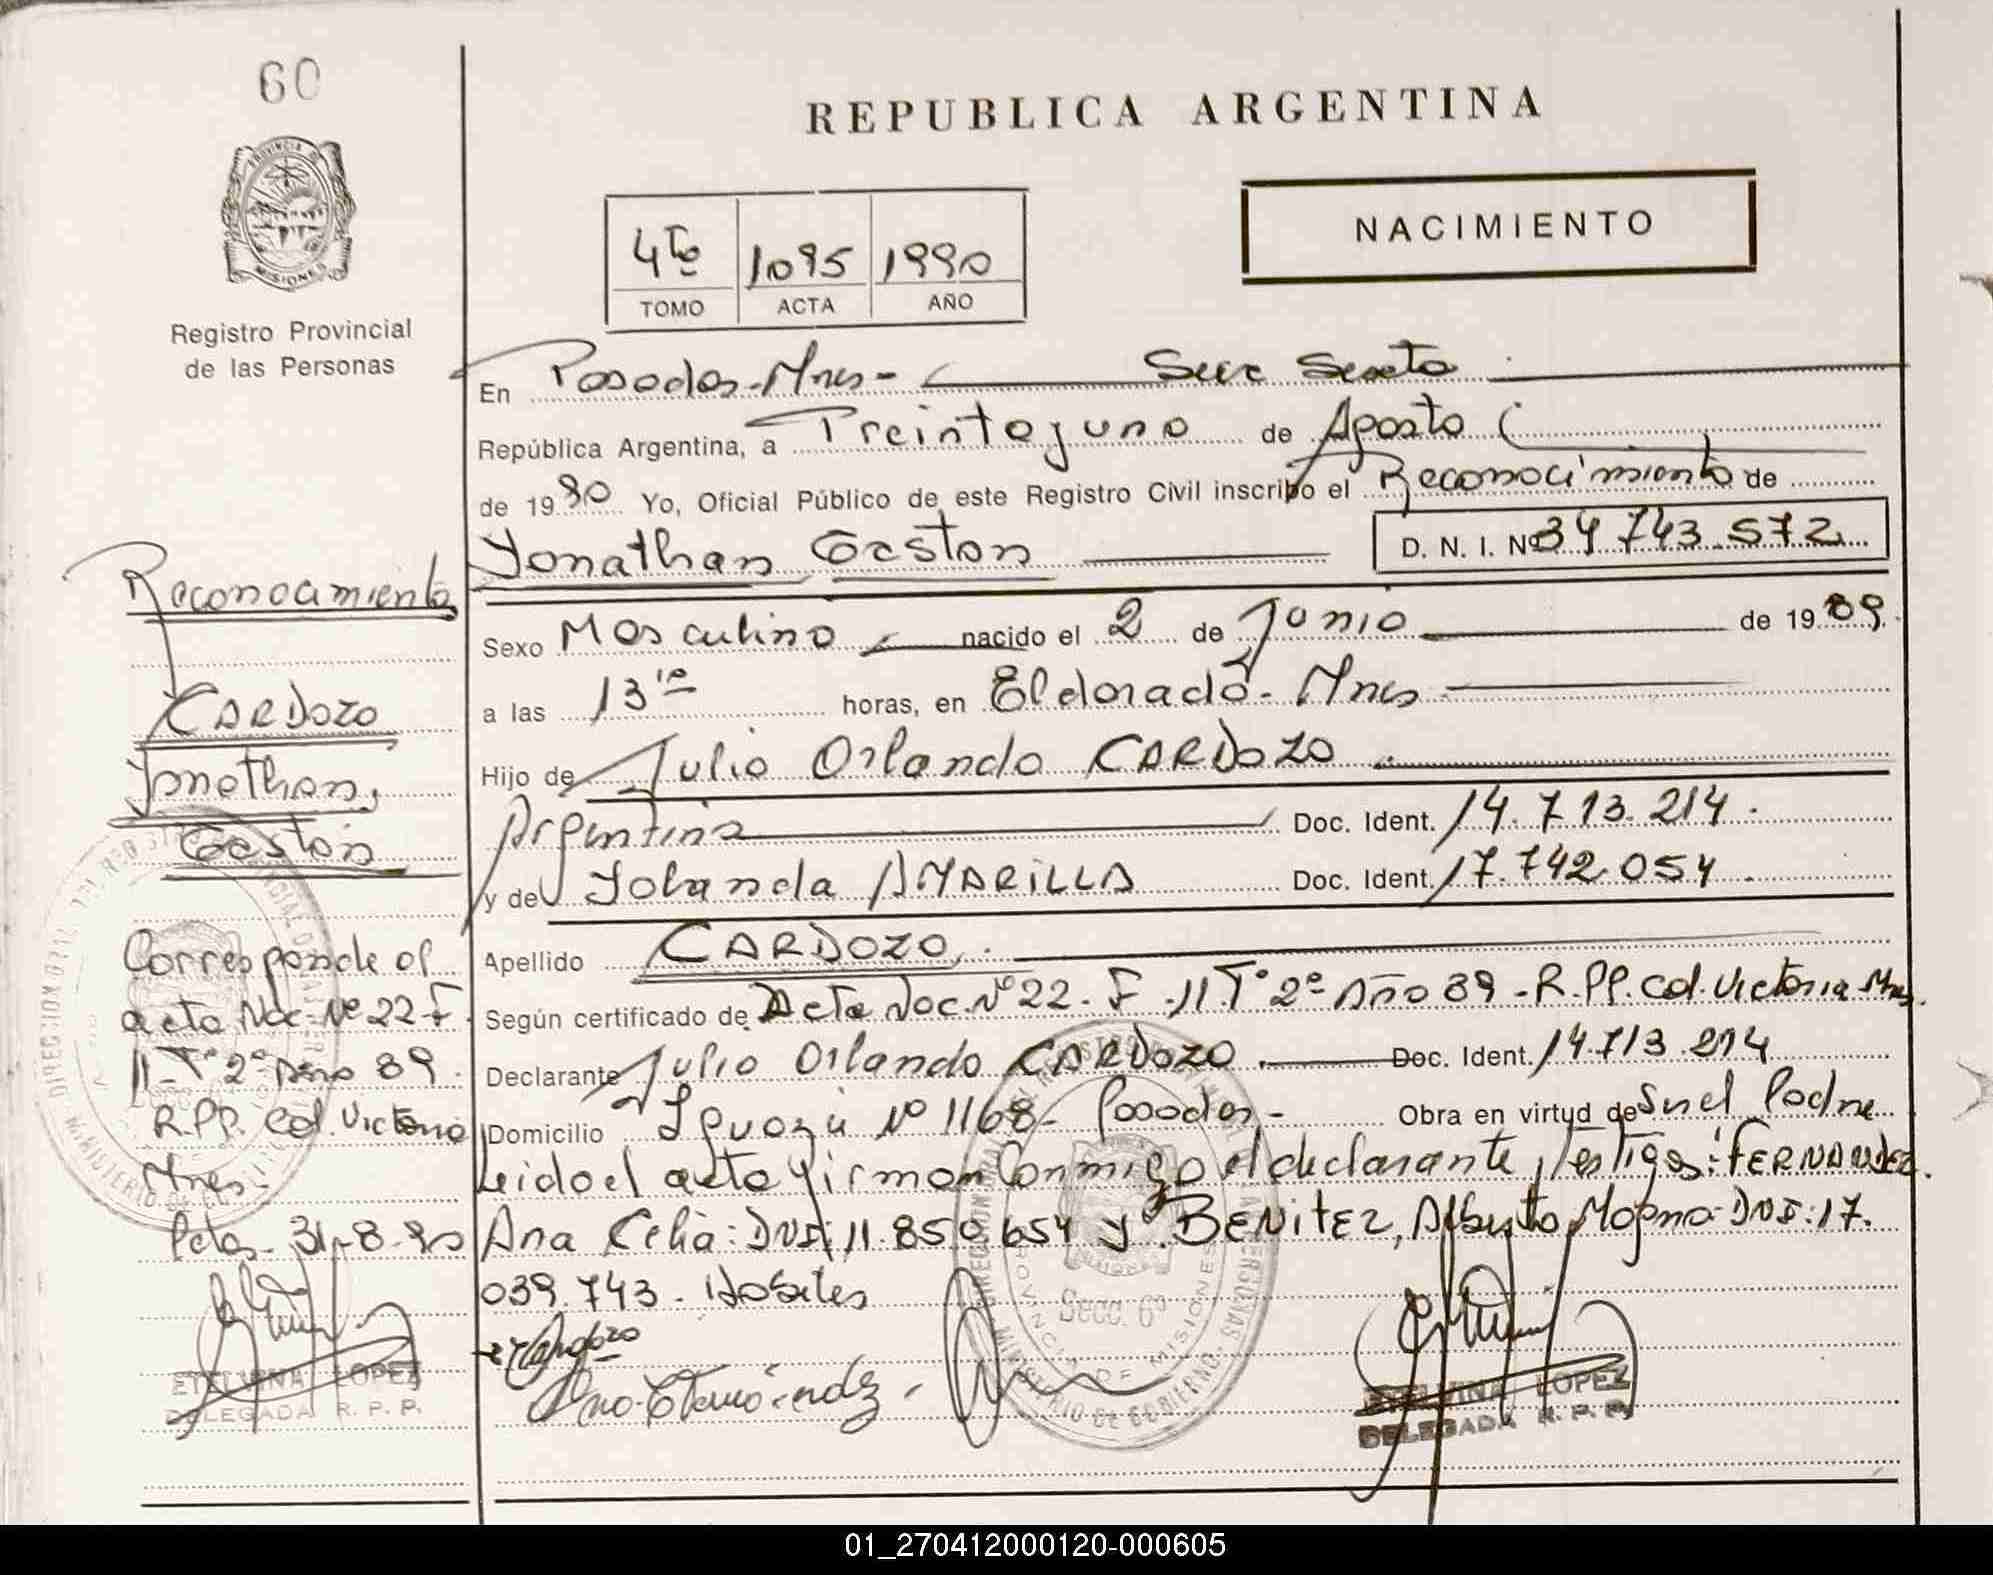 60
REPUBLICA ARGENTINA
PROVINCIA DE
MISIONES
NACIMIENTO
4to 1095 1990
TOMO ACTA AÑO
Registro Provincial
de las Personas
En Posadas-Mnes- Secc Sexta
República Argentina, a Treinta y uno de Agosto
de 1990 Yo, Oficial Público de este Registro Civil inscribo el Reconocimiento de
Jonathan Gastón D. N. I. Nº 34.743.572
Sexo Masculino nacido el 2 de Junio de 1989
a las 13 horas, en Eldorado- Mnes
Hijo de Julio Orlando CARDOZO
Argentina Doc. Ident. 14.713.214.
y de Yolanda AMARILLA Doc. Ident. 17.742.054.
Apellido CARDOZO.
Según certificado de Acta Nac. Nº 22- F-11-Tº 2º Año 89-R.PP. Col. Victoria Mnes.
Declarante Julio Orlando CARDOZO. Doc. Ident. 14.713.214
Domicilio Iguazú Nº 1168- Posadas- Obra en virtud de Ser el Padre
Leido el acta firman Conmigo el declarante, testigos: FERNANDEZ
Ana Celia: DNI: 11.850.654 y BENITEZ, Alberto Magno- DNI: 17.
039.743. Hábiles
Reconocimiento
CARDOZO
Jonathan,
Gastón
Corresponde al
acta Nac. Nº 22 F
11- Tº 2º Año 89.
R.PP. Col. Victoria
Mnes-
Pdas- 31-8-90
ETELVINA LOPEZ
DELEGADA R. P. P.
Secc. 6º
PROVINCIA DE MISIONES
MINISTERIO DE GOBIERNO
ETELVINA LOPEZ
DELEGADA R. P. P.
01_270412000120-000605